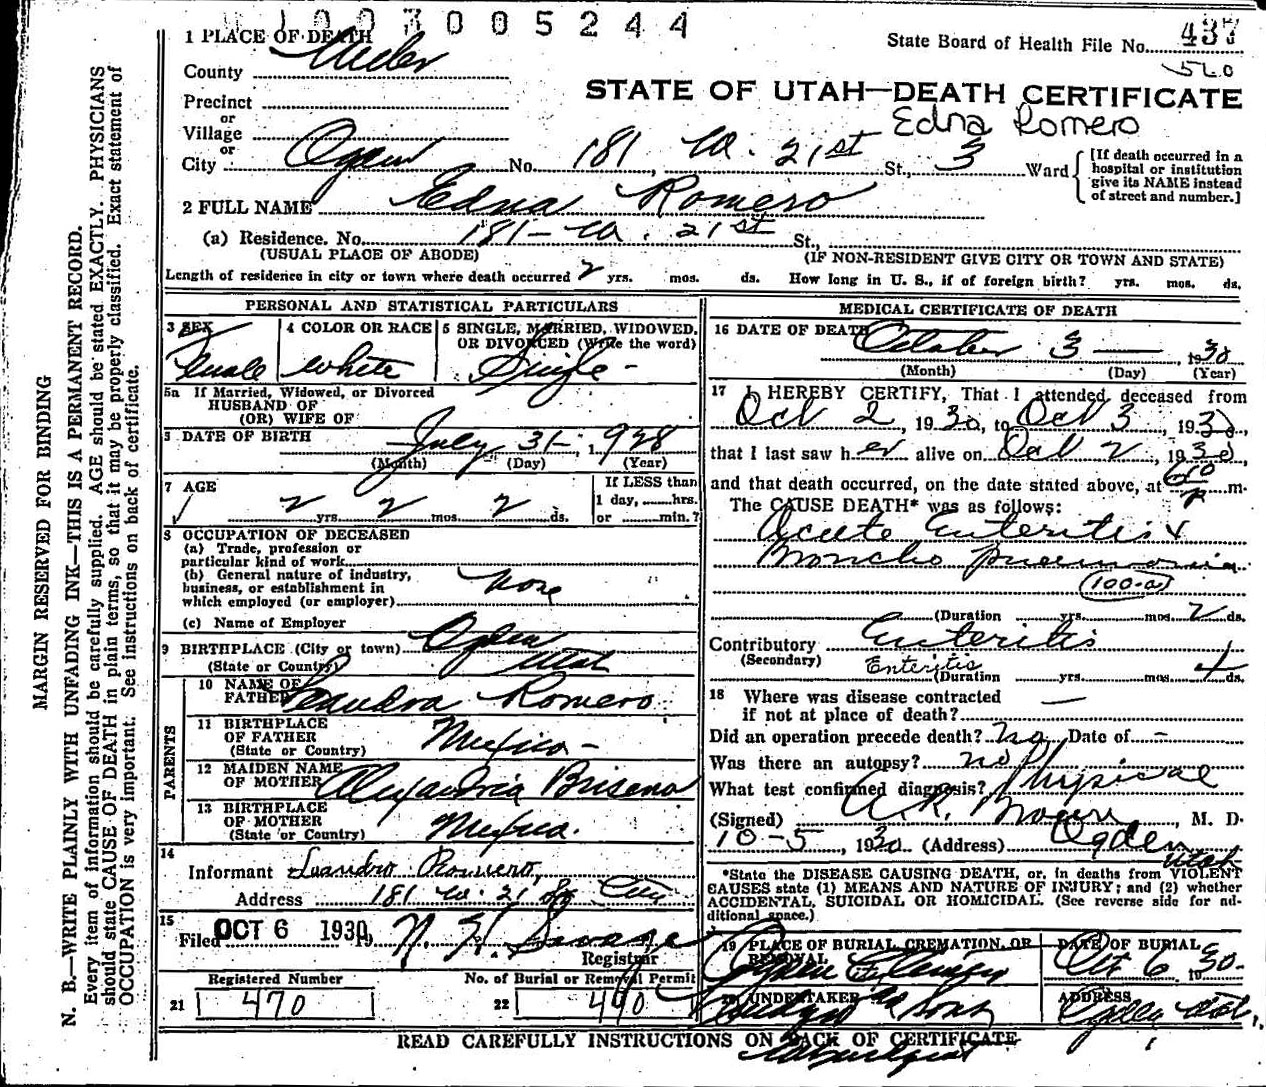 1003005244
1 PLACE OF DEATH
State Board of Health File No. 437
560
County Weber
STATE OF UTAH—DEATH CERTIFICATE
Precinct
or
Village
Edna Romero
or
City Ogden No. 181 W. 21st St., 3 Ward
[If death occurred in a hospital or institution give its NAME instead of street and number.]
2 FULL NAME Edna Romero
(a) Residence. No. 181 - W. 21st St.,
(USUAL PLACE OF ABODE) (IF NON-RESIDENT GIVE CITY OR TOWN AND STATE)
Length of residence in city or town where death occurred 2 yrs. mos. ds. How long in U. S., if of foreign birth? yrs. mos. ds.
MARGIN RESERVED FOR BINDING
N. B.—WRITE PLAINLY WITH UNFADING INK—THIS IS A PERMANENT RECORD.
Every item of information should be carefully supplied. AGE should be stated EXACTLY. PHYSICIANS
should state CAUSE OF DEATH in plain terms, so that it may be properly classified. Exact statement of
OCCUPATION is very important. See instructions on back of certificate.
PERSONAL AND STATISTICAL PARTICULARS
3 SEX
Female
4 COLOR OR RACE
White
5 SINGLE, MARRIED, WIDOWED,
OR DIVORCED (Write the word)
Single -
5a If Married, Widowed, or Divorced
HUSBAND OF
(OR) WIFE OF
DATE OF BIRTH July 31 - 1928
(Month) (Day) (Year)
7 AGE
2 yrs. 2 mos. 2 ds.
If LESS than
1 day, hrs.
or min.?
8 OCCUPATION OF DECEASED
(a) Trade, profession or
particular kind of work
(b) General nature of industry,
business, or establishment in
which employed (or employer) none
(c) Name of Employer
9 BIRTHPLACE (City or town) Ogden
(State or Country) Utah
PARENTS
10 NAME OF
FATHER Leandra Romero
11 BIRTHPLACE
OF FATHER
(State or Country) Mexico -
12 MAIDEN NAME
OF MOTHER Alexandria Briseno
13 BIRTHPLACE
OF MOTHER
(State or Country) Mexico.
14
Informant Leandro Romero,
Address 181 W. 21 St City
15
Filed OCT 6 1930 19 N. H. Savage
Registrar
Registered Number
21 470
No. of Burial or Removal Permit
22 470
MEDICAL CERTIFICATE OF DEATH
16 DATE OF DEATH
October 3 — 1930
(Month) (Day) (Year)
17 I HEREBY CERTIFY, That I attended deceased from
Oct 2, 1930, to Oct 3, 1930,
that I last saw her alive on Oct 2, 1930,
and that death occurred, on the date stated above, at p m.
The CAUSE DEATH* was as follows:
Acute Enteritis +
Broncho pneumonia
(100-a)
(Duration yrs. mos. 2 ds.
Contributory Enteritis
(Secondary) Enteritis
(Duration yrs. mos. 4 ds.
18 Where was disease contracted
if not at place of death? —
Did an operation precede death? no Date of -
Was there an autopsy? no
What test confirmed diagnosis? Physical
(Signed) A. R. , M. D.
10-5, 1930 (Address) Ogden Utah
*State the DISEASE CAUSING DEATH, or, in deaths from VIOLENT
CAUSES state (1) MEANS AND NATURE OF INJURY; and (2) whether
ACCIDENTAL, SUICIDAL OR HOMICIDAL. (See reverse side for ad-
ditional space.)
19 PLACE OF BURIAL, CREMATION, OR
REMOVAL
Ogden City
DATE OF BURIAL
Oct 6 1930
UNDERTAKER
& Sons
ADDRESS
Ogden Utah
READ CAREFULLY INSTRUCTIONS ON BACK OF CERTIFICATE